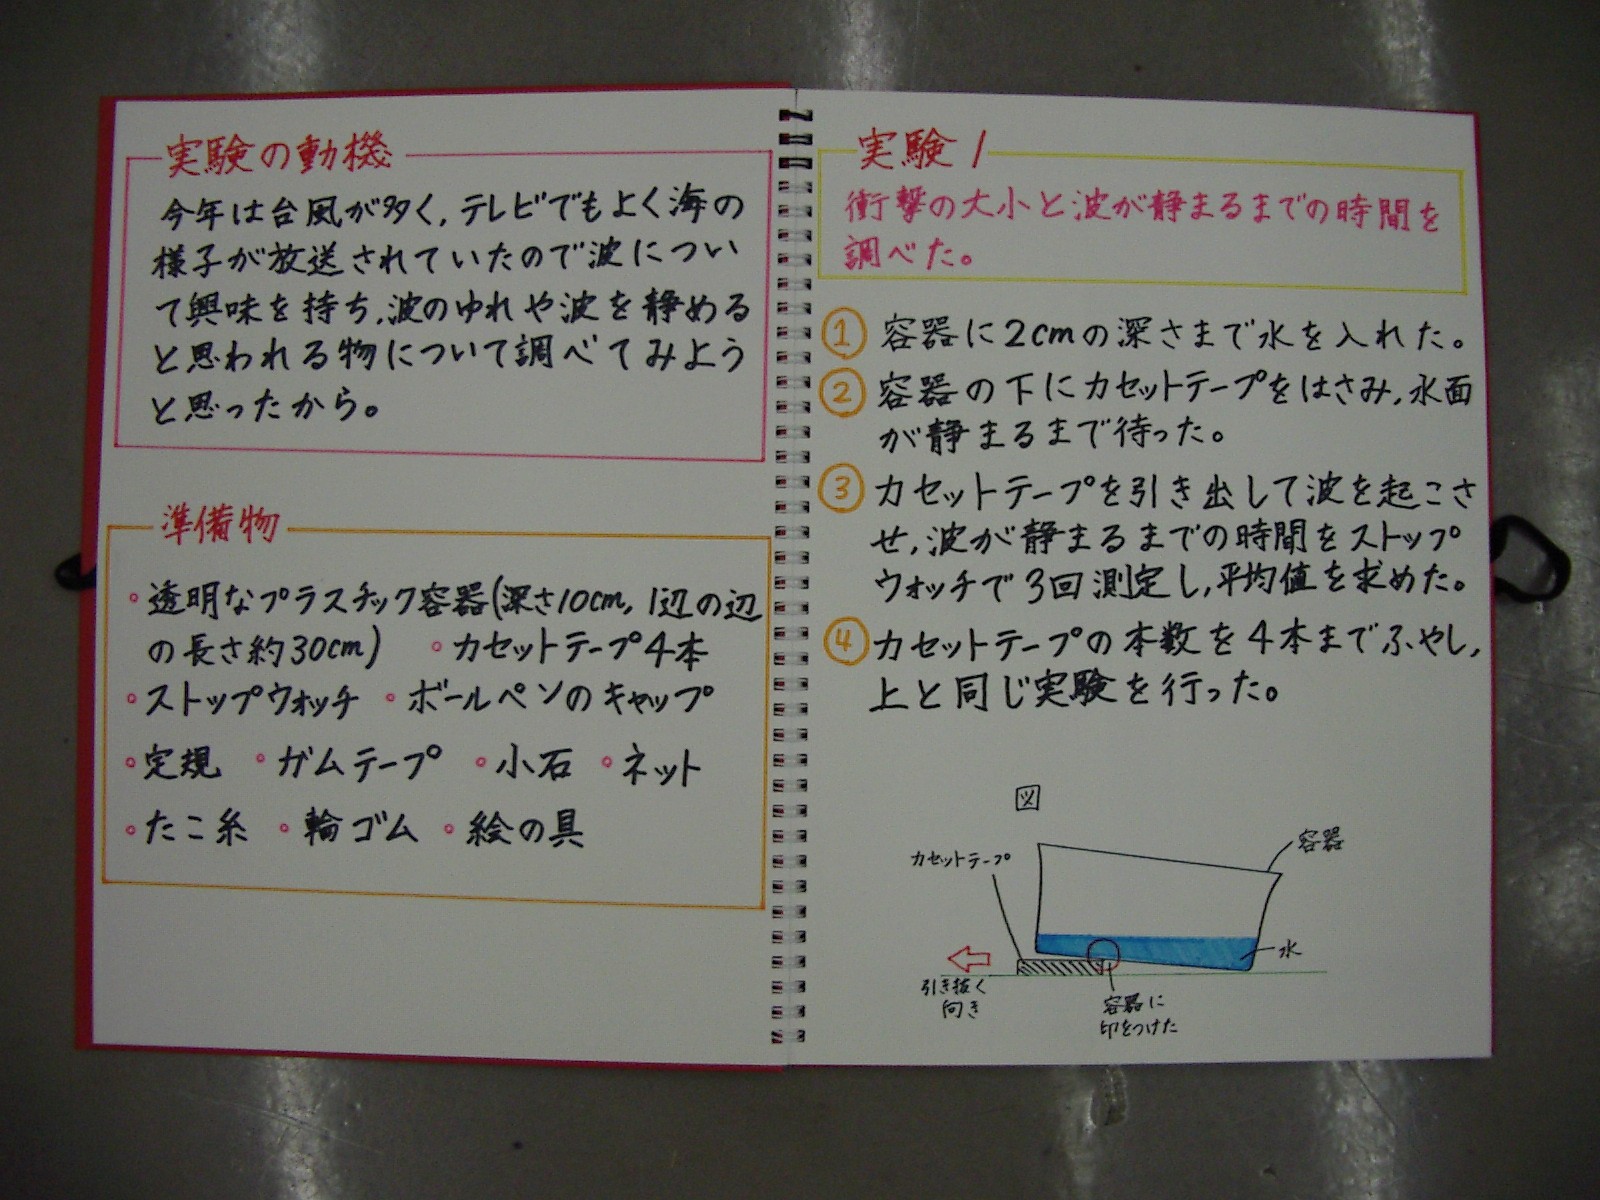 実験の動機
今年は台風が多く,テレビでもよく海の
様子が放送されていたので波につい
て興味を持ち,波のゆれや波を静める
と思われる物について調べてみよう
と思ったから。
準備物
・透明なプラスチック容器(深さ10cm,1辺の辺
の長さ約30cm) ・カセットテープ4本
・ストップウォッチ ・ボールペンのキャップ
・定規 ・ガムテープ ・小石 ・ネット
・たこ糸 ・輪ゴム ・絵の具
実験1
衝撃の大小と波が静まるまでの時間を
調べた。
① 容器に2cmの深さまで水を入れた。
② 容器の下にカセットテープをはさみ,水面
が静まるまで待った。
③ カセットテープを引き出して波を起こさ
せ,波が静まるまでの時間をストップ
ウォッチで3回測定し,平均値を求めた。
④ カセットテープの本数を4本までふやし,
上と同じ実験を行った。
図
カセットテープ
容器
水
引き抜く
向き
容器に
印をつけた